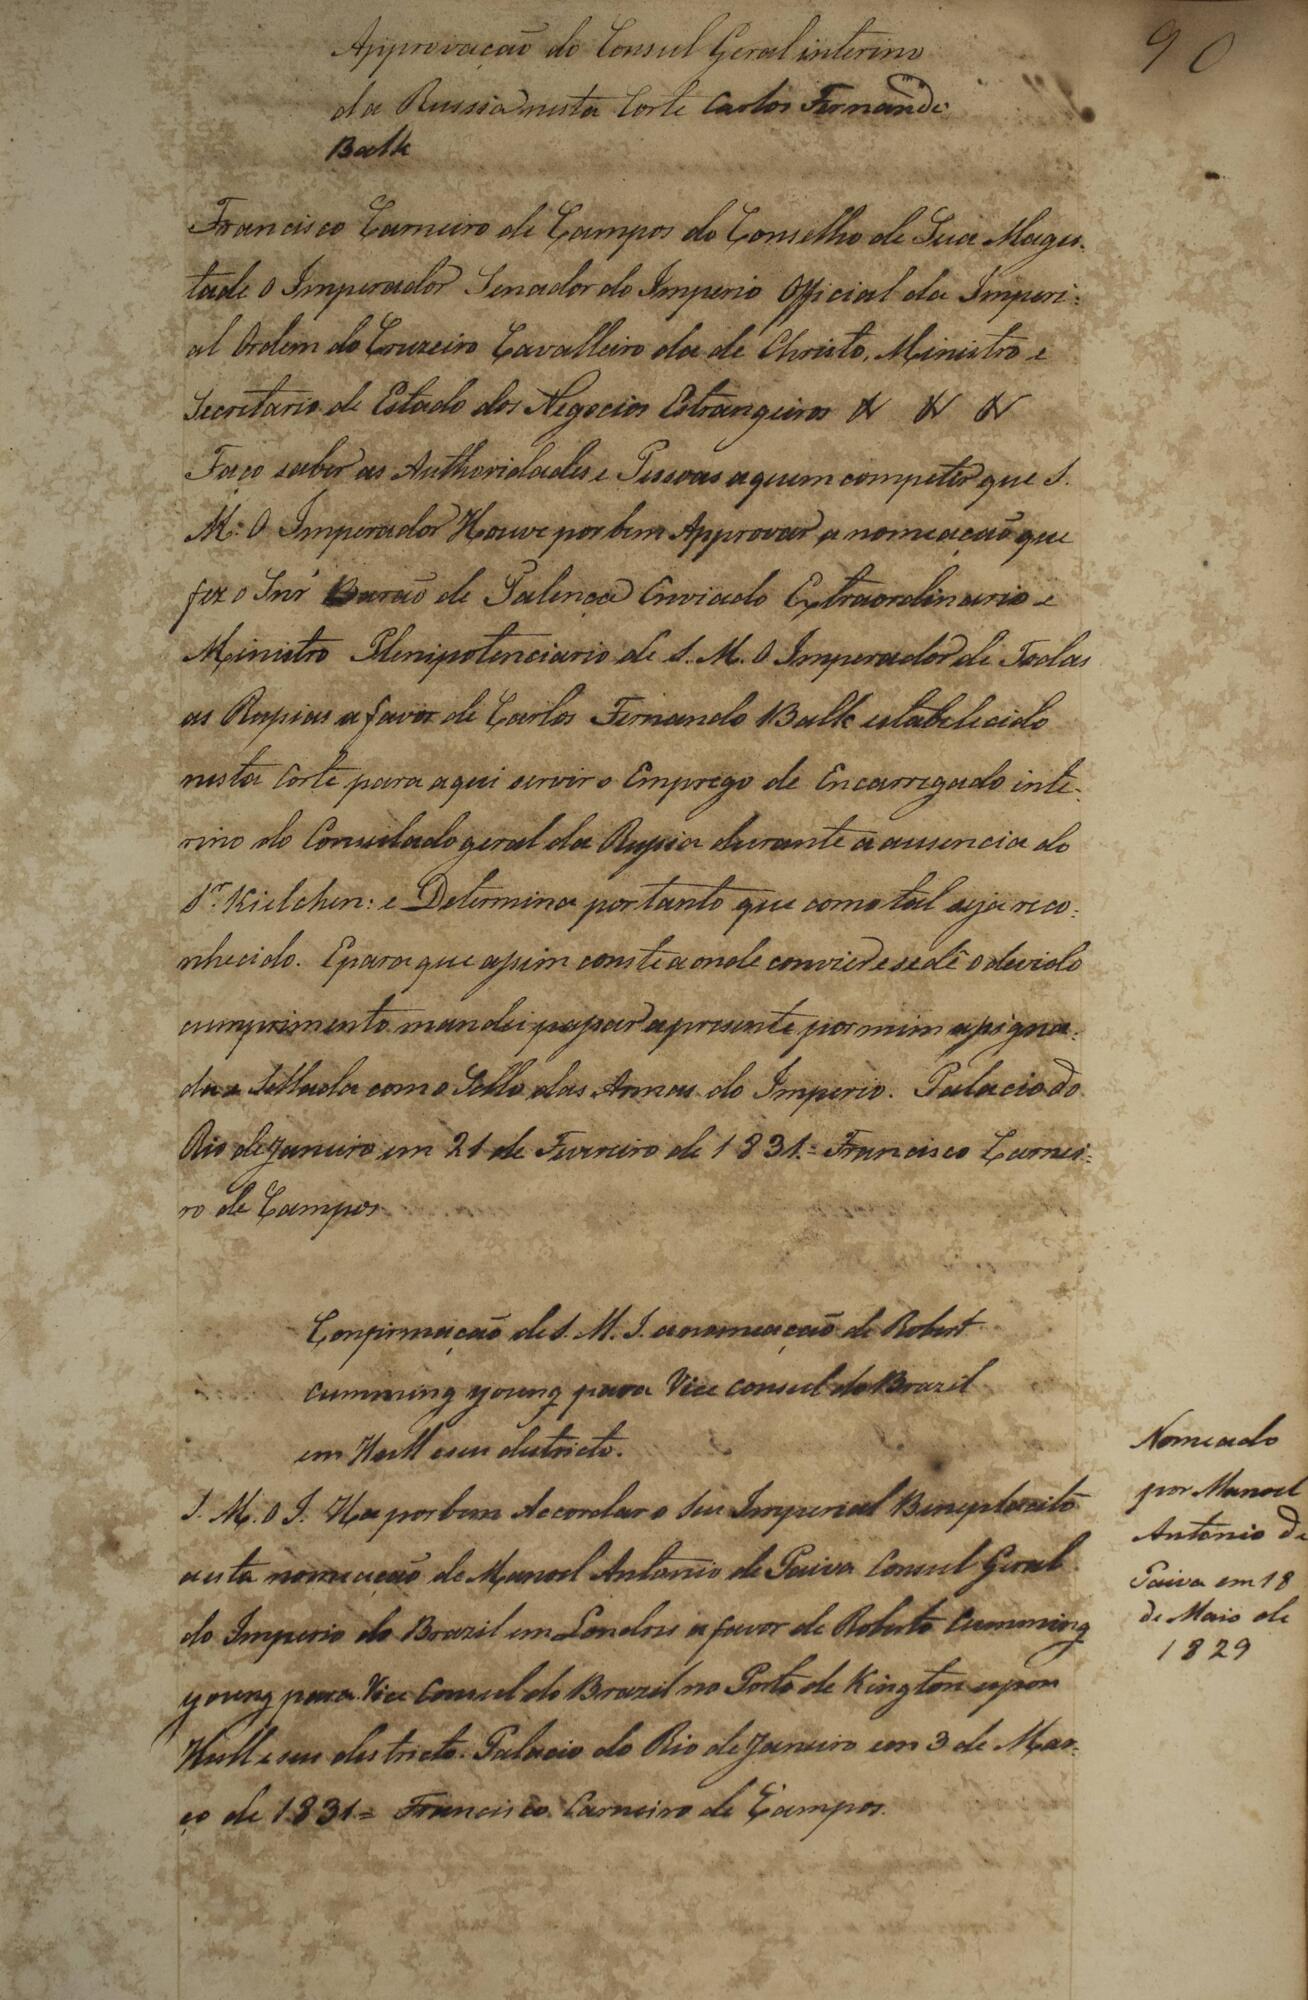 90
Approvação do Consul Geral interino
da Russia nesta Corte Carlos Fernando
Balk
Francisco Carneiro de Campos do Conselho de Sua Mages-
tade o Imperador Senador do Imperio Official da Imperi-
al Ordem do Cruzeiro Cavalleiro da de Christo, Ministro e
Secretario de Estado dos Negocios Estrangeiros
Faço saber as Authoridades e Pessoas aquem competir que S.
M: O Imperador Houve por bem Approvar a nomeação que
fez o Snr' Barão de Palença Enviado Extraordinario e
Ministro Plenipotenciario de S. M. O Imperador de Todas
as Russias a favor de Carlos Fernando Balk estabelecido
nesta Corte para aqui servir o Emprego de Encarregado inte-
rino do Consulado geral da Russia durante a ausencia do
Sr. Kielchen: e Determina portanto que como tal seja reco-
nhecido. E para que assim conste a onde convier e se dê o devido
cumprimento mandei passar a presente por mim assigna-
da e Sellada com o Sello das Armas do Imperio. Palacio do
Rio de Janeiro em 21 de Fevereiro de 1831.= Francisco Carnei-
ro de Campos
Confirmação de S. M. I. a nomeação de Robert
Cumming young para Vice Consul do Brazil
em Hull e seu districto.
S. M. O I. Ha por bem Accordar o Seu Imperial Beneplacito
a esta nomeação de Manoel Antonio de Paiva Consul Geral
do Imperio do Brazil em Londres a favor de Roberto Cumming
young para Vice Consul do Brazil no Porto de Kington upon
Hull e seu districto. Palacio do Rio de Janeiro em 3 de Mar-
ço de 1831= Francisco Carneiro de Campos.
Nomeado
por Manoel
Antonio de
Paiva em 18
de Maio de
1829